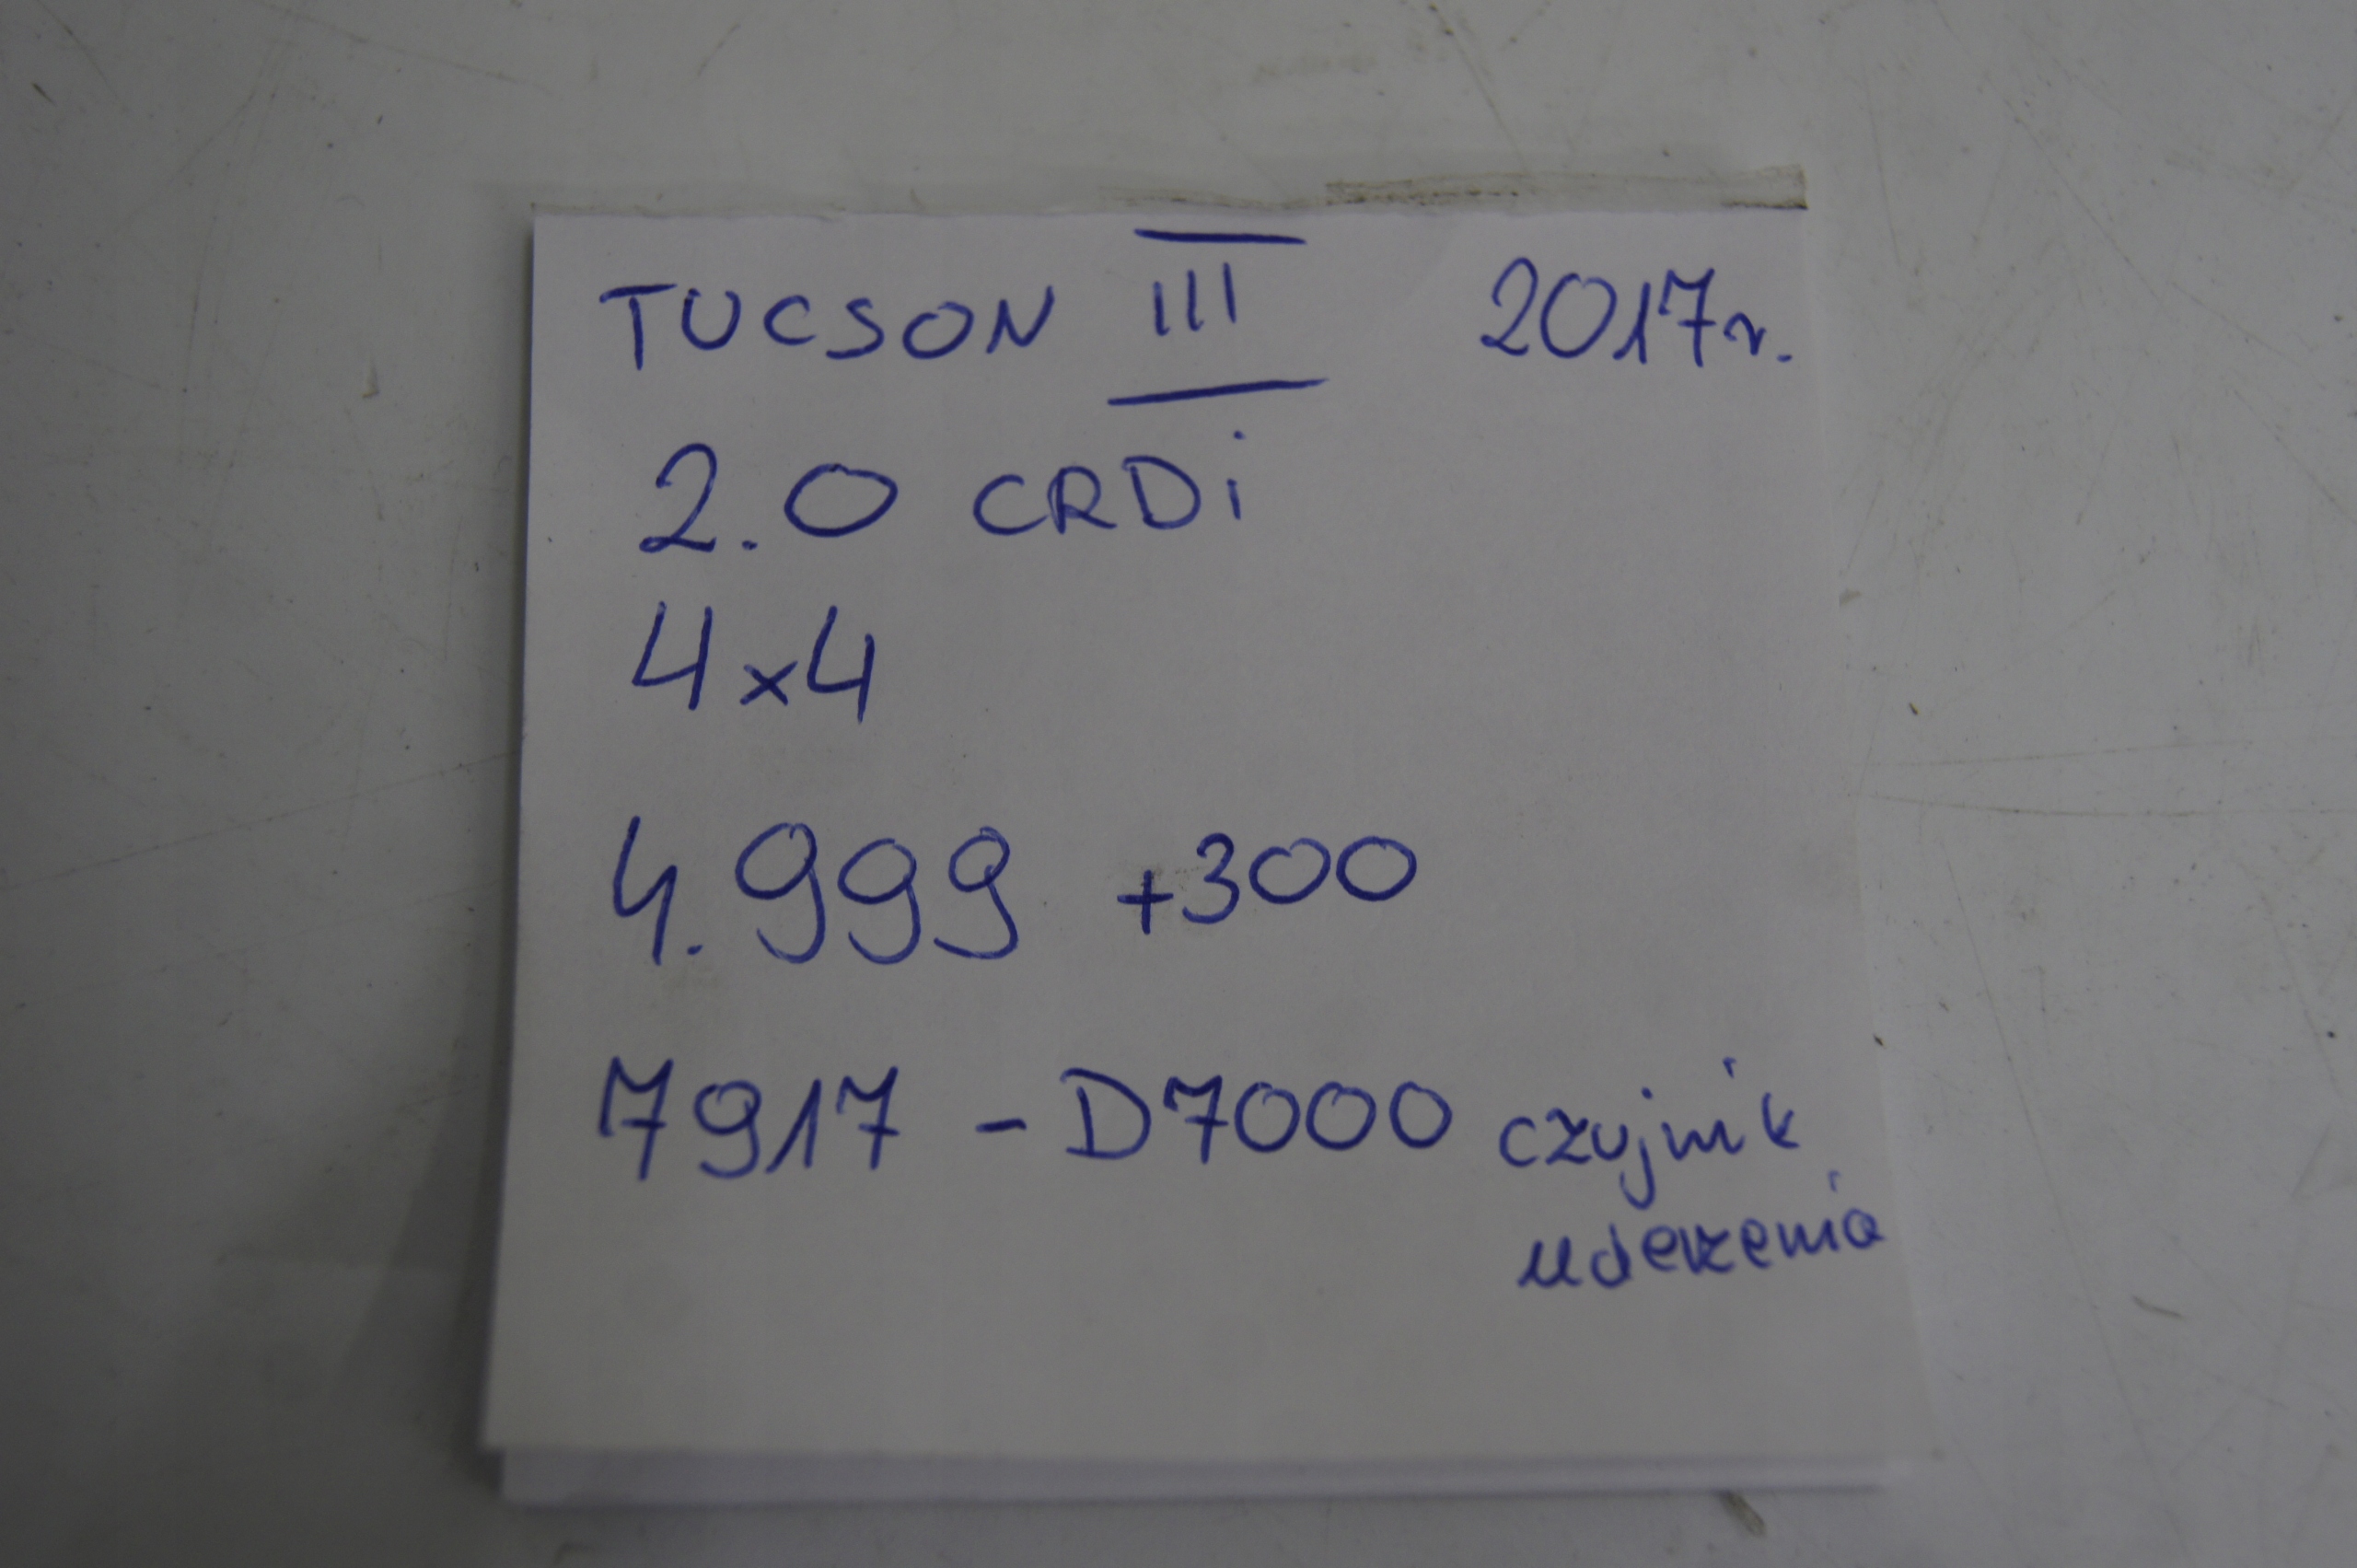 TUCSON III 2017r.
2.0 CRDi
4x4
4.999 +300
7917 - D7000 czujnik
uderzenia